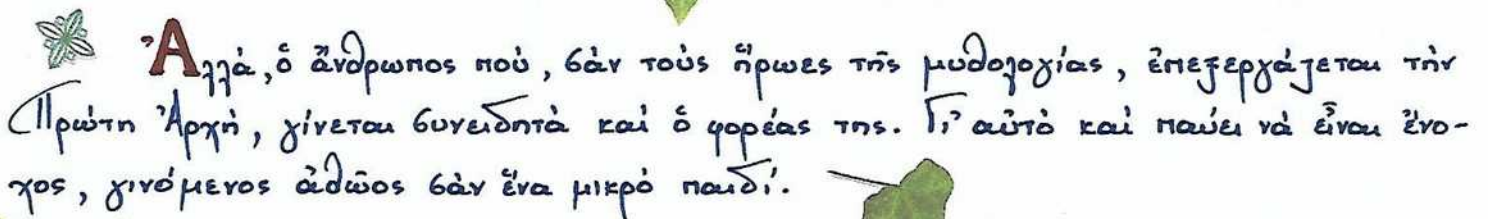 Ἀλλά, ὁ ἄνθρωπος πού, σάν τούς ἥρωες τῆς μυθολογίας, ἐπεξεργάζεται τήν
Πρώτη Ἀρχή, γίνεται συνειδητά καί ὁ φορέας της. Γι' αὐτό καί παύει νά εἶναι ἔνο-
χος, γινόμενος ἀθῶος σάν ἕνα μικρό παιδί.